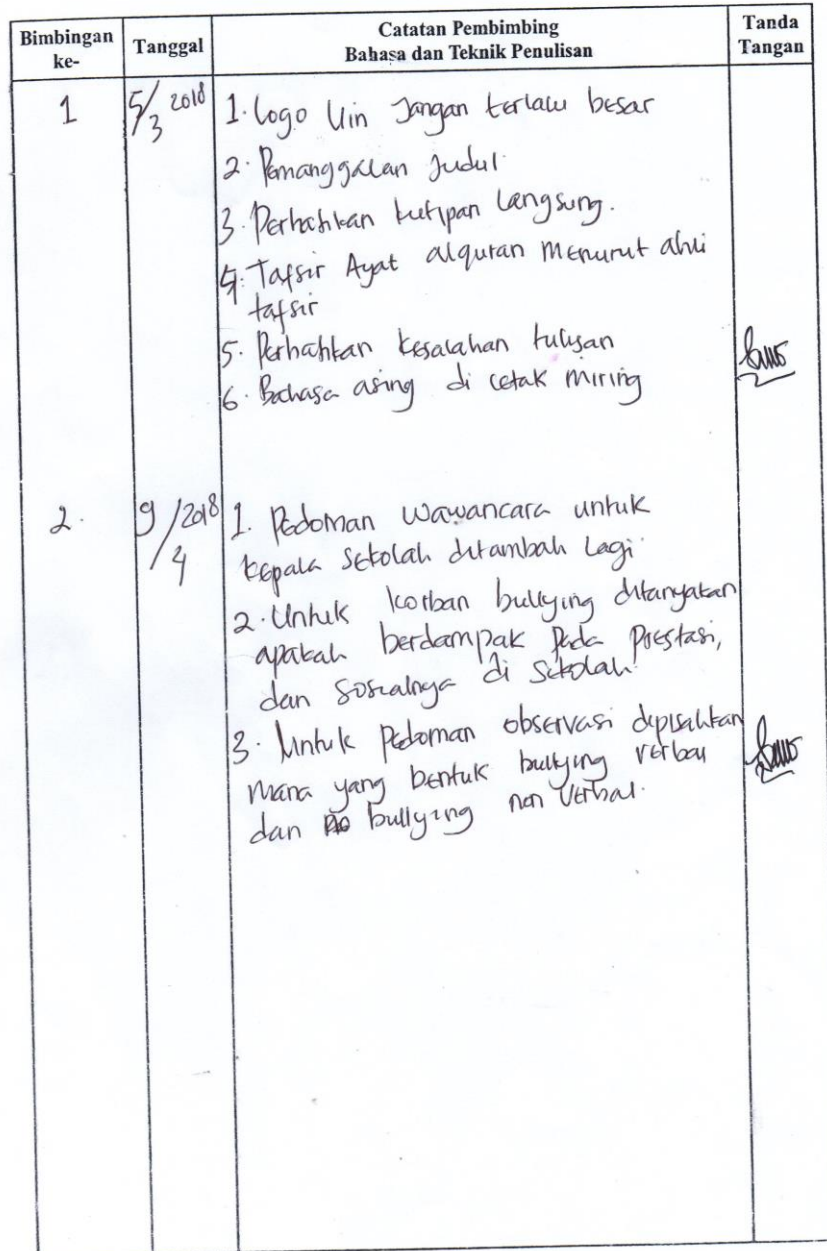 Bimbingan ke-
Tanggal
Catatan Pembimbing
Bahasa dan Teknik Penulisan
Tanda Tangan
1
5/3 2018
1. Logo Uin Jangan terlalu besar
2. Pemanggalan Judul.
3. Perhatikan kutipan langsung.
4. Tafsir Ayat alquran menurut ahli
tafsir
5. Perhatikan kesalahan tulisan
6. Bahasa asing di cetak miring
2.
9/4 2018
1. Pedoman wawancara untuk
kepala sekolah ditambah lagi
2. Untuk korban bullying ditanyakan
apakah berdampak pada prestasi,
dan sosialnya di sekolah.
3. Untuk pedoman observasi dipisahkan
mana yang bentuk bullying verbal
dan bullying non verbal.